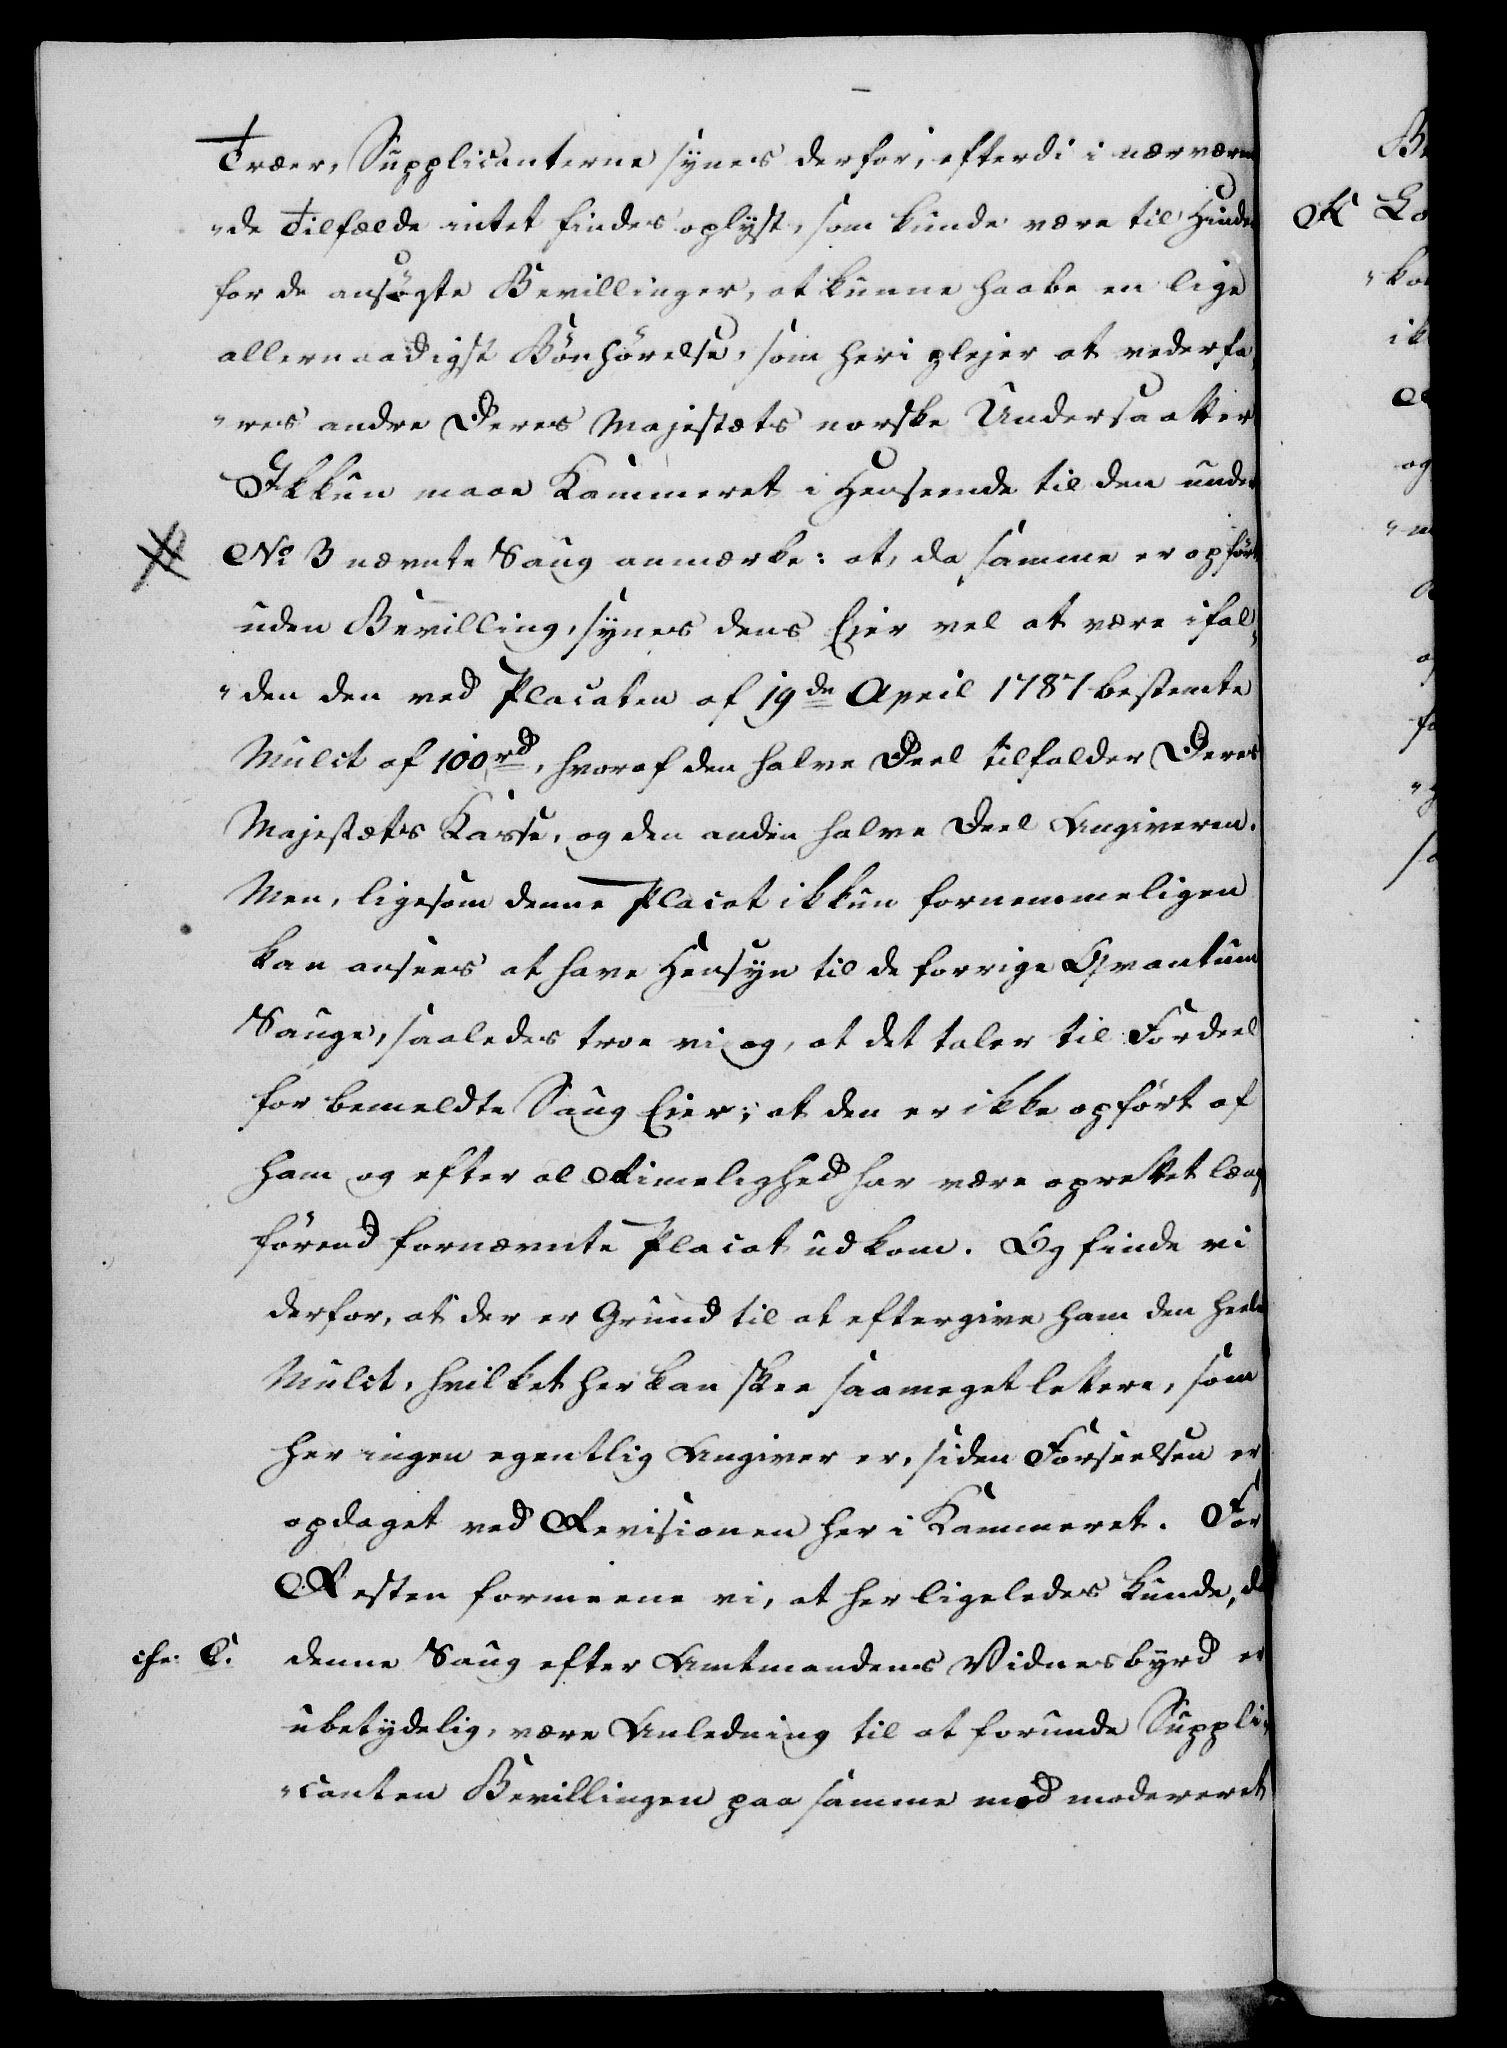 Træer, Supplicanterne synes derfor, efterdi i nærværen
"de Tilfælde intet findes oplyst, som kunde være til Hinder
for de ansøgte Bevillinger, at kunne haabe en lige
allernaadigst Bönhörelse, som heri plejer at vederfa,
"res andre Deres Majestæts norske Undersaatter
Ikkun maae Kammeret i Henseende til den under
No 3 nævnte Saug anmærke: at, da samme er opført
uden Bevilling, synes dens Eier vel at være ifal,
"den den ved Placaten af 19de April 1787 bestemte
Mulct af 100rd, hvoraf den halve Deel tilfalder Deres
Majestæts Kasse, og den anden halve Deel Angiveren.
Men, ligesom denne Placat ikkun fornemmeligen
kan ansees at have Hensyn til de forrige Qvantum
Sauge, saaledes troe vi og, at det taler til Fordeel
for bemeldte Saug Eier; at den er ikke opfört af
ham og efter al Rimelighed har være oprettet læng
förend fornævnte Placat udkom. Og finde vi
derfor, at der er Grund til at eftergive ham den heele
Mulct, hvilket her kan skee saameget lettere, som
her ingen egentlig Angiver er, siden Forseelsen er
opdaget ved Revisionen her i Kammeret. For
Resten formeene vi, at her ligeledes kunde, da
cfr: C. denne Saug efter Amtmandens Vidnesbyrd er
ubetydelig, være Anledning til at forunde Suppli,
"canten Bevillingen paa samme mod modereret